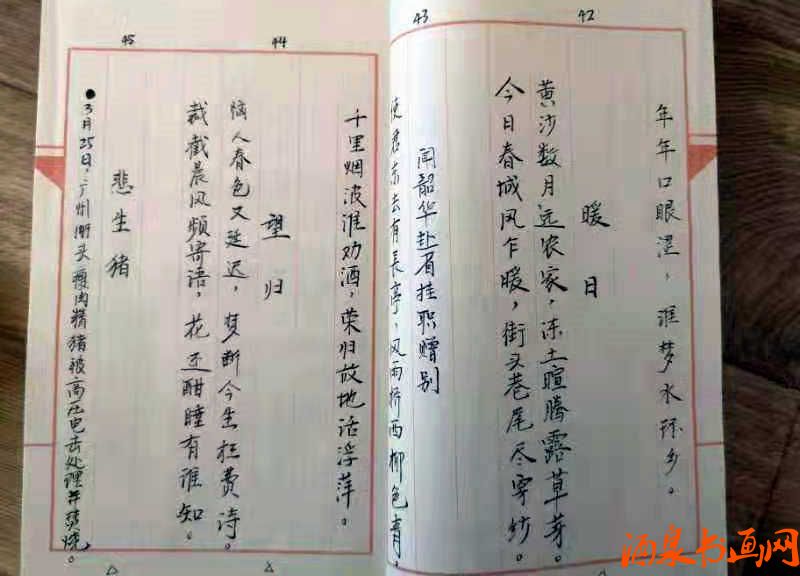 42
年年口眼涩，谁梦水环乡。
暖日
黄沙数月远农家，冻土暄腾露草芽。
今日春城风乍暖，街头巷尾尽穿纱。
43
闻韶华赴省挂职赠别
使君东去有长亭，风雨桥西柳色青，
44
千里烟波谁劝酒，荣归故地话浮萍。
望归
恼人春色又延迟，梦断今生枉费诗。
裁截晨风频寄语，花还酣睡有谁知。
45
悲生猪
●3月25日，广州街头瘦肉精猪被高压电击处理并焚烧。
酒泉书画网